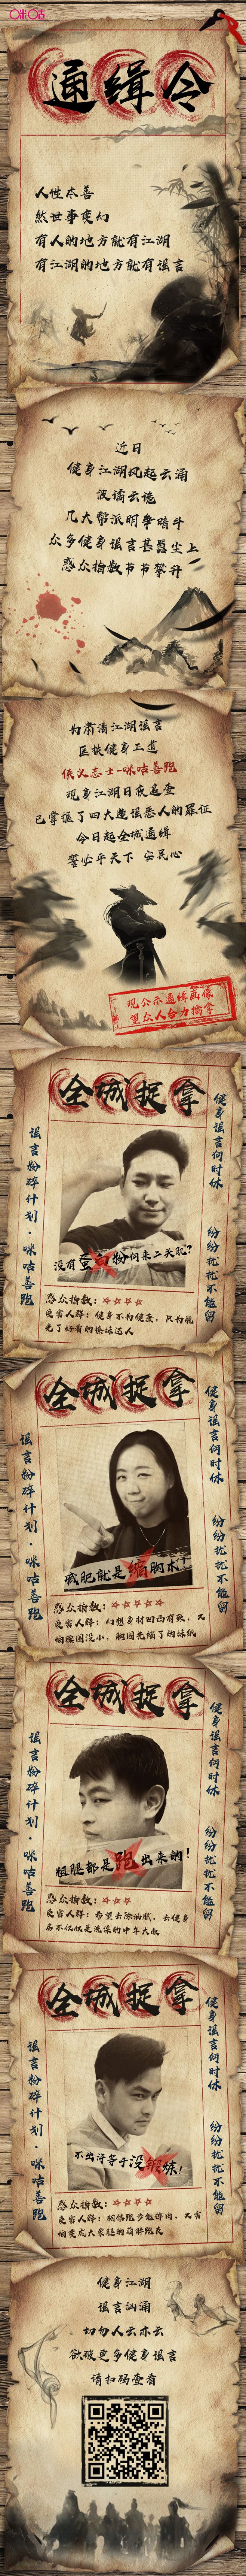 咪咕
通缉令
人性本善
然世事变幻
有人的地方就有江湖
有江湖的地方就有谣言
近日
健身江湖风起云涌
波谲云诡
几大帮派明争暗斗
众多健身谣言甚嚣尘上
惑众指数节节攀升
为肃清江湖谣言
匡扶健身正道
侠义志士-咪咕善跑
现身江湖日夜追查
已掌握了四大造谣恶人的罪证
今日起全城通缉
誓必平天下 安民心
现公示通缉画像
望众人合力擒拿
全城捉拿
健身谣言何时休 纷纷扰扰不能留
谣言粉碎计划·咪咕善跑
没有蛋白粉何来二头肌?
惑众指数:☆☆☆☆
受害人群:健身不为健康,只为脱
光了好看的操妹达人
全城捉拿
健身谣言何时休 纷纷扰扰不能留
谣言粉碎计划·咪咕善跑
减肥就是缩胸术!
惑众指数:☆☆☆☆☆
受害人群:幻想身材凹凸有致,又
怕腰围没小,胸围先缩了的妹纸
全城捉拿
健身谣言何时休 纷纷扰扰不能留
谣言粉碎计划·咪咕善跑
粗腿都是跑出来的!
惑众指数:☆☆☆
受害人群:希望去除油腻,去健身
房不仅仅是洗澡的中年大叔
全城捉拿
健身谣言何时休 纷纷扰扰不能留
谣言粉碎计划·咪咕善跑
不出汗等于没锻炼!
惑众指数:☆☆☆☆
健身江湖
谣言汹涌
切勿人云亦云
欲破更多健身谣言
请扫码查看